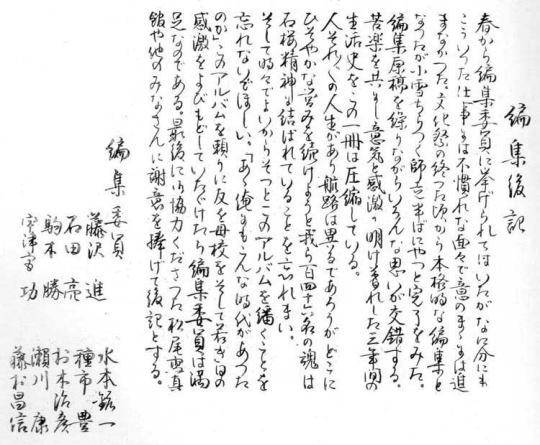 編集後記
春から編集委員に挙げられてはいたがなに分にも
こういった仕事には不慣れな面々で意のままには進
まなかった。文化祭の終った頃から本格的な編集と
なったが小雪ちらつく師走半ばにやっと完了をみた。
編集原稿を綴りながらいろんな思いが交錯する。
苦楽を共にし意気と感激に明け暮れした三年間の
生活史をこの一冊は圧縮している。
人それぞれの人生があり航路は異るであろうがどこに
ひそやかな営みを続けようと我ら百四十六名の魂は
石桜精神に結ばれていることを忘れまい。
そして時々でよいからそっとこのアルバムを繙くことを
忘れないでほしい。「あゝ俺にもこんな時代があった
のか」このアルバムを頼りに友を母校をそして若き日の
感激をよびもどしていただけたら編集委員は満
足なのである。最後に御協力くださった松尾写真
館や他のみなさんに謝意を捧げて後記とする。
編集委員
藤沢 進
石田 亮
駒木 勝
宇津宮 功
水本 鉱一
種市 豊
お木 治彦
瀬川 康
藤村 昌信